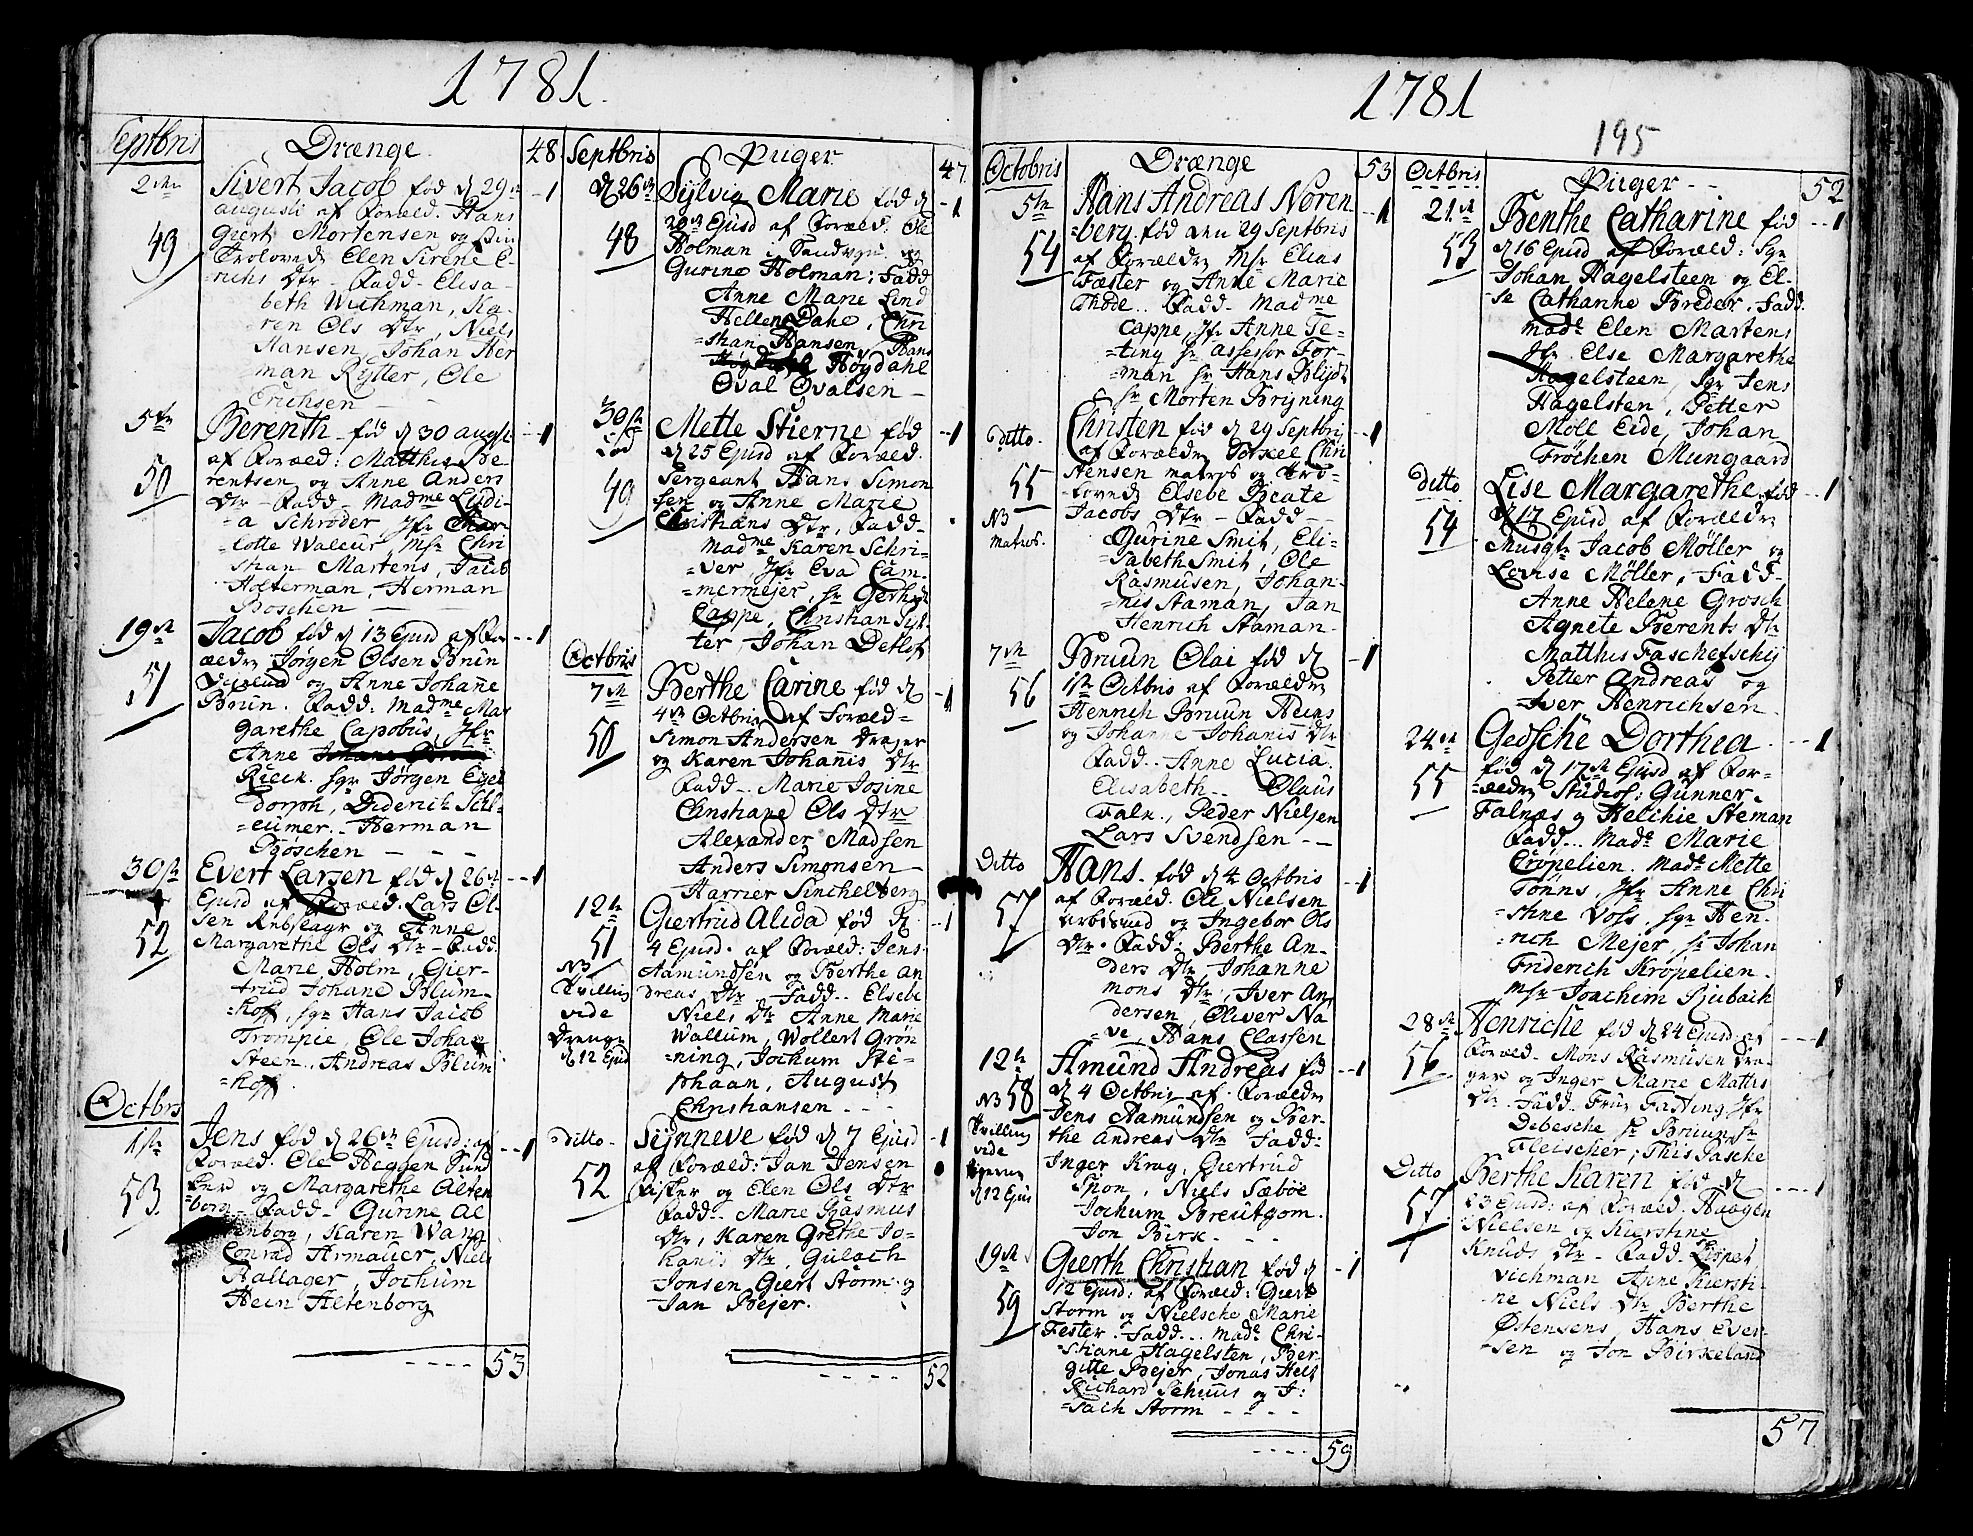 1781.
Septbris
Drænge.
48.
2den
Sivert Jacob fød d 29de
-1
49
augusti af Foræld. Hans
Giert Mortensen og
Trolovede Elen Sirene E-
=richs Dtr - Fadd - Elisa-
beth Wichman, Ka-
ren Ols Dtr, Niels
Hansen, Johan Her
man Rytter, Ole
Erichsen - -
5te
Berenth fød d 30 augst
-1
50
af Foræld: Matthis Be
rentsen og Anne Anders
Dtr - Fadd - Madme Lydi-
=a Schrøder, Jfr Char
lotte Waleur, Msr Chri
stian Martens, Jacob
Holterman, Herman
Böschen -
19de
Jacob fød d 13 Ejusd af For
--1
51
ældre Jørgen Olsen Brun
og Anne Johanne
Brun. Fadd: Madme Mar
garethe Capobus, Jfr
Anne
Rieck. Sgr Jørgen Egel
dorph, Diderich Schl-
=eumer.. Herman
Böschen - - -
30te
Evert Larsen fød d 26de
--1
52
Ejusd af Foræld. Lars Ol-
sen Rebslagr og Anne
Margarethe Ols Dtr - Fadd.
Marie Holm, Gier-
trud Johane Blum-
=hoff, Sgr Hans Jacob
Trompie, Ole Johan
Steen, Andreas Blum
=hoff
Octbris
1ste
Jens fød d 26de Ejusd: af
--1
53.
Foræld. Ole Heggen Sund
og Margarethe Alten
=borg - Fadd - Gurine Al
tenborg, Karen Wang
Conrad Armauer, Niels
Hallager, Jochum
Hein Altenborg
---- 53
Septbris
Piger
47.
d 26de
Sylvia Marie fød d
-1
48
20de Ejusd af Foræld. Ole
Holman i Sandvigen og
Gurine Holman; Fadd.
Anne Marie Lind
Hellen Dahe, Chri
=stian Hansen, Hans
Høydahl
Oval Ovalsen -
30te
Mette Stierne fød
-1
49
d 25 Ejusd af Foræld.
Sergeant Hans Simon
sen og Anne Marie
Christians Dtr, Fadd-
Madme Karen Schri-
=ver, Jfr Eva Cam-
=mermejer, Sr Gerhard
Cappe, Christian
ter Johan Detlof
Octbris
7de
Berthe Carine fød d
-1
50
4de Octbris af Foræld=
Simon Andersen Drager
og Karen Johanis Dtr
Fadd - Marie Josine
Christiane Ols Dtr
Alexander Madsen
Anders Simonsen -
Harrier Sinchelberg
12te
Giertrud Alida fød d.
-1
51
4 Ejusd. af Foræld: Jens
NB
Aamundsen og Berthe An
Tvilling
dreas Dtr Fadd.. Elsebe
vide
Niels Dtr Anne Marie
Drenge
Wallum, Wollert Grön
d 12 Ejusd
=ning, Jochum Ste-
phaan, August
Christiansen - - -
Ditto-
Synneve fød d 7 Ejusd
-1
52
af Foræld: Jan Jensen
Fisker og Elen Ols Dtr
Fadd. Marie Rasmus
Dtr, Karen Grethe Jo-
hanis Dtr, Gulach
Jonsen, Giert Storm og
Jan Bejer.
----- 52
1781
195
Octobris
Drænge
53
5te
Hans Andreas Noren
-1
54
=berg. fød den 29 Septbris
af Forældre Msr Elias
Fæster og Anne Marie
Thode.. Fadd - Madme
Cappe, Jfr Anne Te-
=ting Sr Assessor For-
=man Sr Hans Blydt
Sr Morten Bryning
Ditto.
Christen fød d 29 Septbris
--1
55
af Forældre Torkel Chri
stensen matros og Tro-
NB
=lovede Elsebe Beate
Matros.
Jacobs Dtr - Fadd -
Gurine Smit, Eli-
=sabeth Smit, Ole
Rasmusen, Johan-
=nis Staman, Jan
Henrich Staman.
7de
Bruun Olai fød d
-1
56
1ste Octbris af Forældre
Henrich Bruun Heins
og Johanne Johanis Dtr
Fadd.. Anne Lucia.
Elisabeth.. Olaus
Faln., Peder Nielsen
Lars Svendsen --
Ditto
Hans. fød d 4 Octbris
-1
57
af Foræld. Ole Nielsen
Arbdsmd og Ingebor Ols
Dtr. Fadd: Berthe An-
ders Dtr, Johanne
mons Dtr, Iver An
dersen, Oliver Na
=ve, Hans Classen
12te
Amund Andreas fød
--1
NB 58
d 4 Octbris af Forældre
Tvilling
Jens Aamundsen og Ber-
vide
the Andreas Dtr Fadd:
Pigerne
Inger Krag, Giertrud
d 12 Ejus
Spon, Niels Sæbøe
Jochum Breutgom.
Jon Birk - - -
19de
Gierth Christian fød d
-1
59
12 Ejusd: af Foræld: Giert
Storm og Nielsche Marie
Fester. Fadd... Made Chri-
=stiane Hagelsten, Ber-
gitte Bejer, Jonas Hels
Richard Schuus og I:
=sach Storm - - - -
---- 59
Octbris
Piger - -
52
21de
Benthe Catharine fød
--1
53
d 16 Ejusd af Foræld: Sgr
Johan Hagelsteen og El-
=se Catharine Breder. Fadd
Made Elen Martens
Jfr. Else Margarethe
Hagelsteen, Sgr Jens
Hagelsten, Petter
Moll Eide, Johan
Fröchen Mungaard
Ditto
Lise Margarethe fød
--1
54
d 17 Ejusd af Forældre
Musqtr Jacob Møller og
Lovise Møller, Fadd-
Anne Helene Grosch
Agnete Berents Dtr
Matthis Faschefschy
Petter Andreas og
Iver Henrichsen.
24de
Gedsche Dorthea
---1
55
fød d 17de Ejusd af For-
=ældre Studios: Gunner.
Falnæs og Helchie Steman
Fadd... Made Marie
Crøpelien, Made Mette
Tønns, Jfr Anne Chri
=stine Vols, Sgr Hen-
=rich Mejer, Sr Johan
Friderich Krøpelien.
Msr Joachim Bjubach
28de
Henriche fød d 24 Ejusd af
---1
56
Foræld. Mons Rasmusen Dra-
ger og Inger Marie Mattis
Dtr. Fadd. Frue Fasting, Jfr
Debesche Sr Bruun, Sr
Fleischer, This Jasche
Ditto
Berthe Karen fød d
---1
57
23 Ejusd: af Foræld. Haagen
Nielsen og Kierstine
Knuds Dtr - Fadd.
Vichman Anne Kiersti-
ne Niels Dtr Berthe
Østensens, Hans Ever-
=sen og Jon Birkeland
57